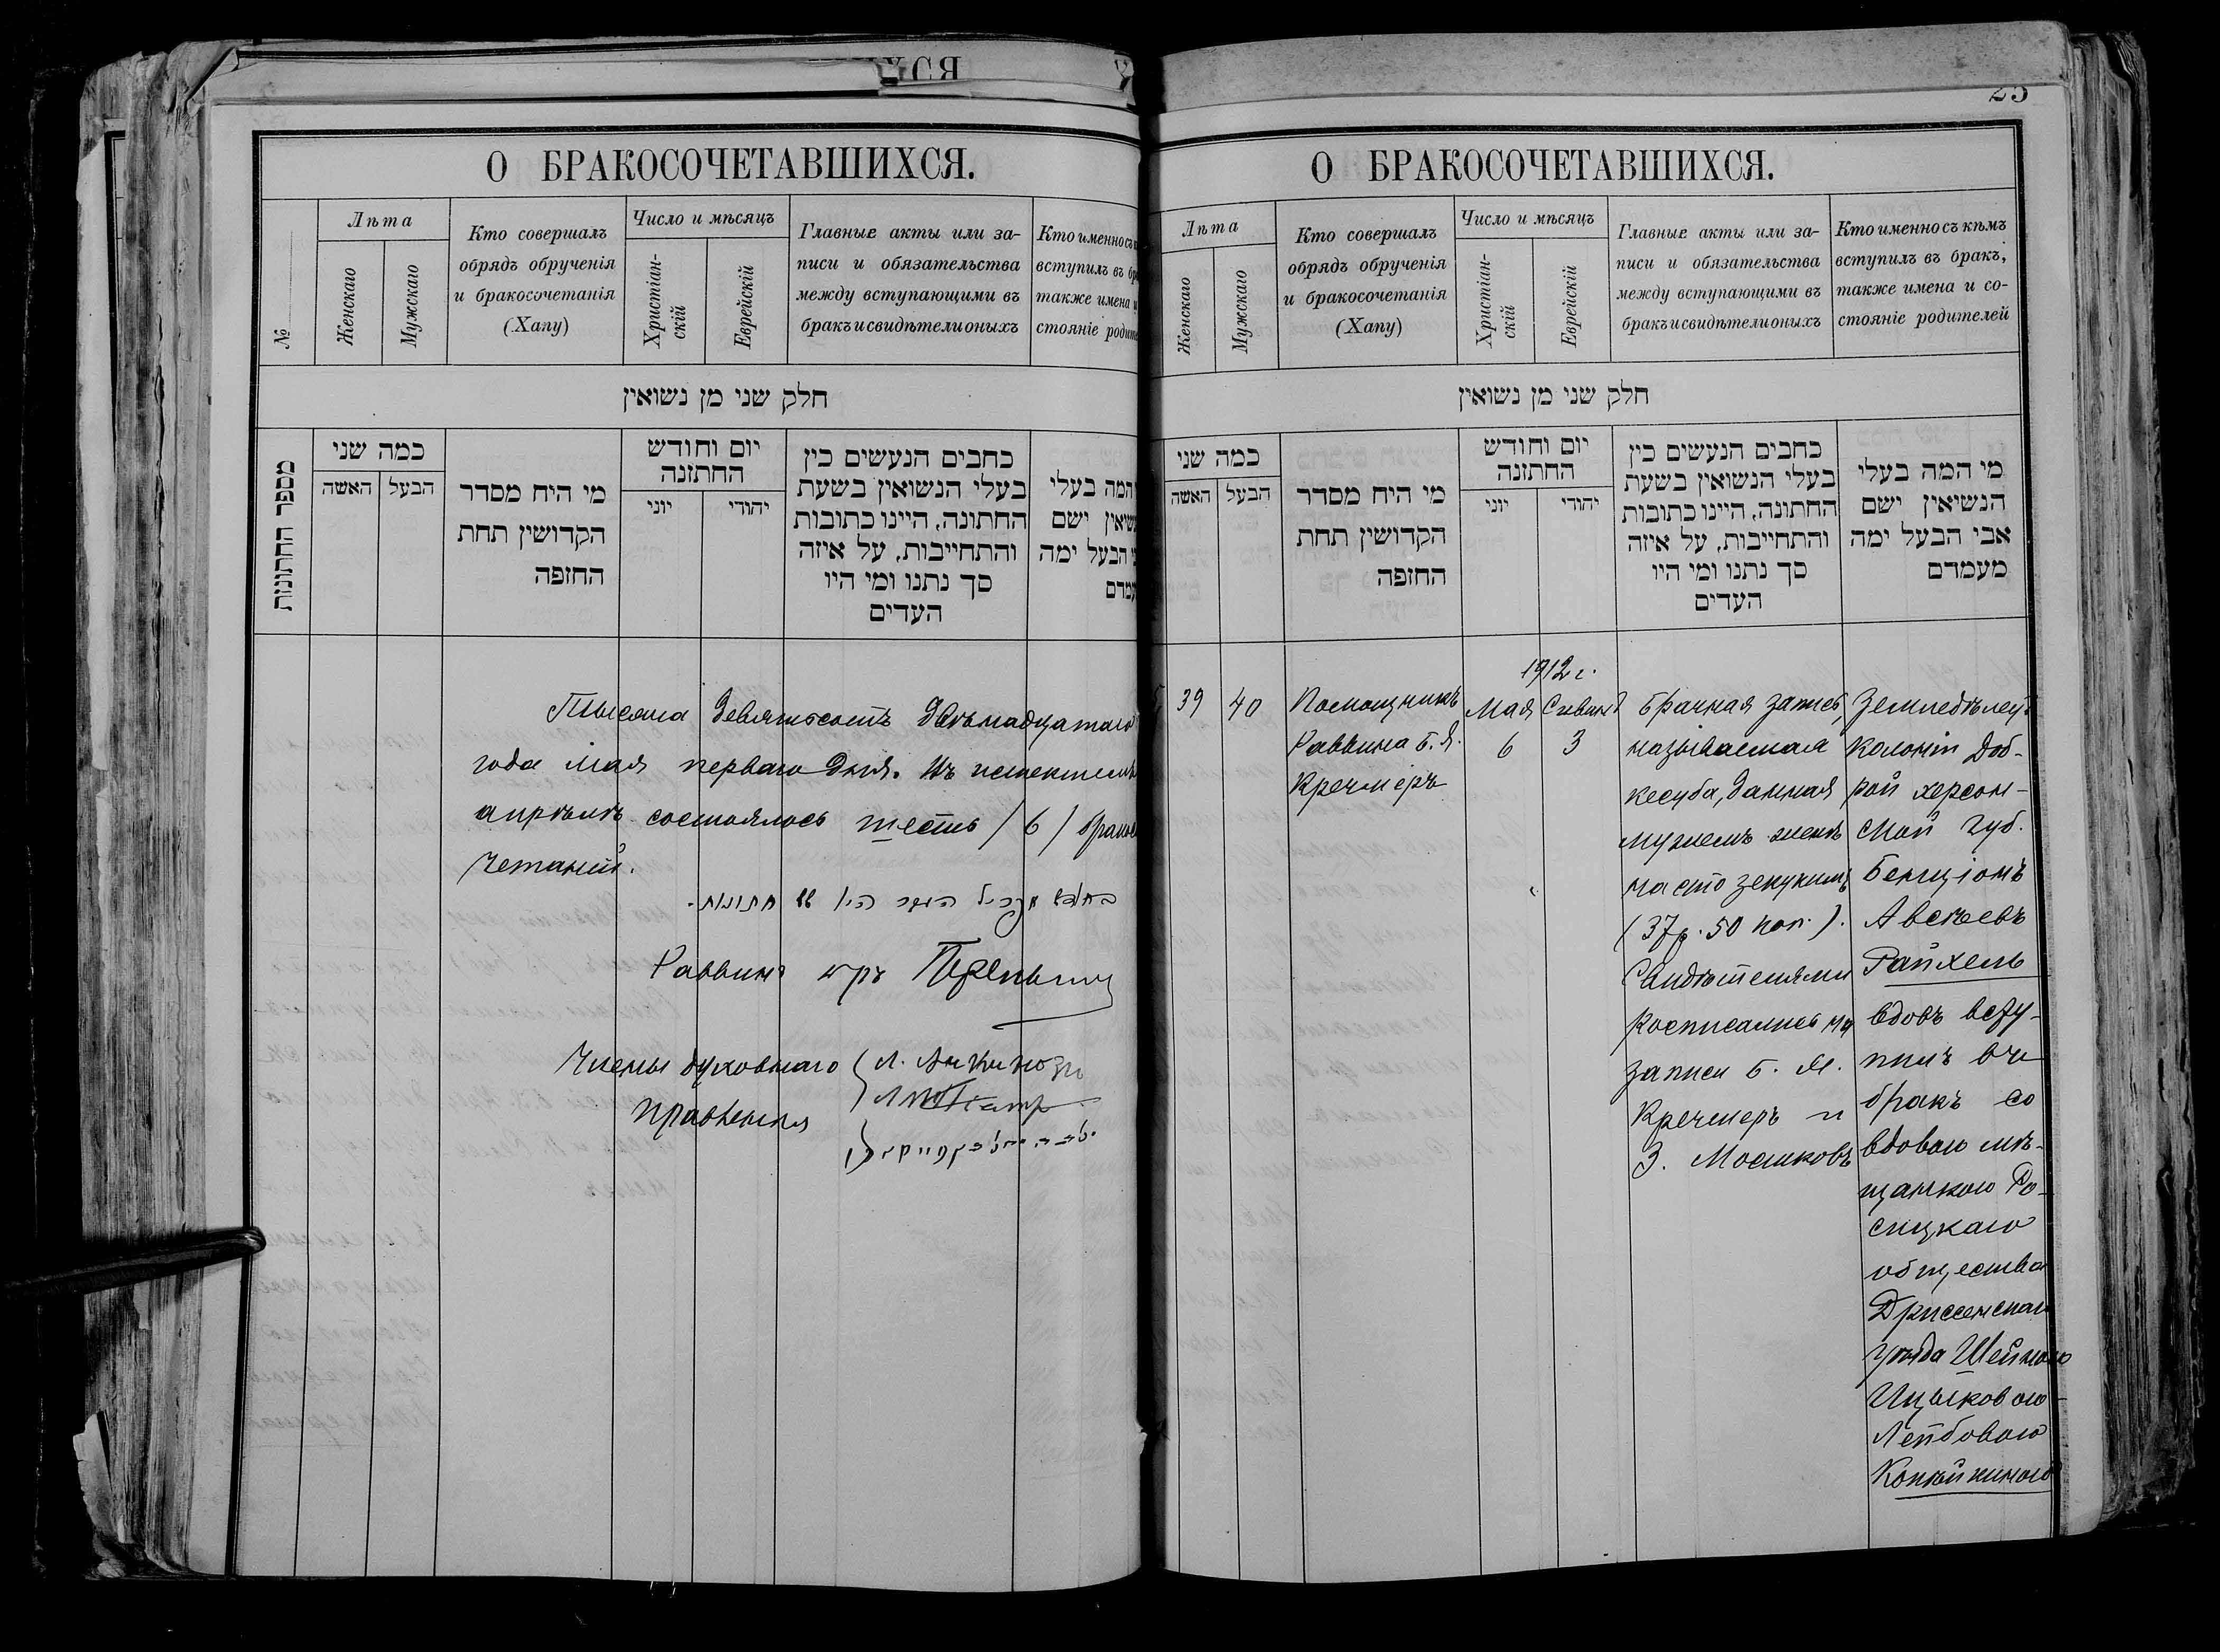 О БРАКОСОЧЕТАВШИХСЯ.
№
Лѣта
Женскаго
Мужскаго
Кто совершалъ
обрядъ обрученія
и бракосочетанія
(Хапу)
Число и мѣсяцъ
Христіан-
скій
Еврейскій
Главные акты или за-
писи и обязательства
между вступающими въ
бракъ и свидѣтели оныхъ
Кто именно съ
вступилъ въ бр
также имена и
стояніе родит
חלק שני מן נשואין
מספר החתונות
כמה שני
האשה
הבעל
מי היח מסדר
הקדושין תחת
החזפה
יום וחודש
החתזנה
יוני
יהודי
כחבים הנעשים כין
בעלי הנשואין בשעת
החתונה, היינו כתובות
והתחייבות, על איזה
סך נתנו ומי היו
העדים
המה בעלי
ישם
הבעל ימה
Тысяча девятьсотъ двѣнадцатаго
года мая перваго дня. Въ истекшемъ
апрѣлѣ состоялось шесть /6/ бракосо
четаній.
חתונות.
Раввинъ
Члены духовнаго
правленія
25
О БРАКОСОЧЕТАВШИХСЯ.
Лѣта
Женскаго
Мужскаго
Кто совершалъ
обрядъ обрученія
и бракосочетанія
(Хапу)
Число и мѣсяцъ
Христіан-
скій
Еврейскій
Главные акты или за-
писи и обязательства
между вступающими въ
бракъ и свидѣтели оныхъ
Кто именно съ кѣмъ
вступилъ въ бракъ,
также имена и со-
стояніе родителей
חלק שני מן נשואין
כמה שני
האשה
הבעל
מי היח מסדר
הקדושין תחת
החזפה
יום וחודש
החתזנה
יוני
יהודי
כחבים הנעשים כין
בעלי הנשואין בשעת
החתונה, היינו כתובות
והתחייבות, על איזה
סך נתנו ומי היו
העדים
מי המה בעלי
הנשיאין ישם
אבי הבעל ימה
מעמדם
39
40
Помощникъ
Раввина Б. Я.
Кречмеръ
1912 г.
Мая
6
Сивина
3
Брачная запись,
называемая
кесуба, данная
мужемъ женѣ
на сто зекукимъ
(37 р. 50 коп.).
Свидѣтелями
росписались на
записи Б. М.
Кречмеръ и
З. Мошковъ
Земледѣлецъ
колоніи Доб-
рой херсон-
ской губ.
Бенціонъ
Авсѣевъ
Райхель
вдовъ всту-
пилъ въ
бракъ со
вдовою мѣ-
щанкою Ро-
сицкаго
общества
Дриссенскаго
уѣзда Шейною
Ицыковою-
Лейбовою
Копѣйкиною